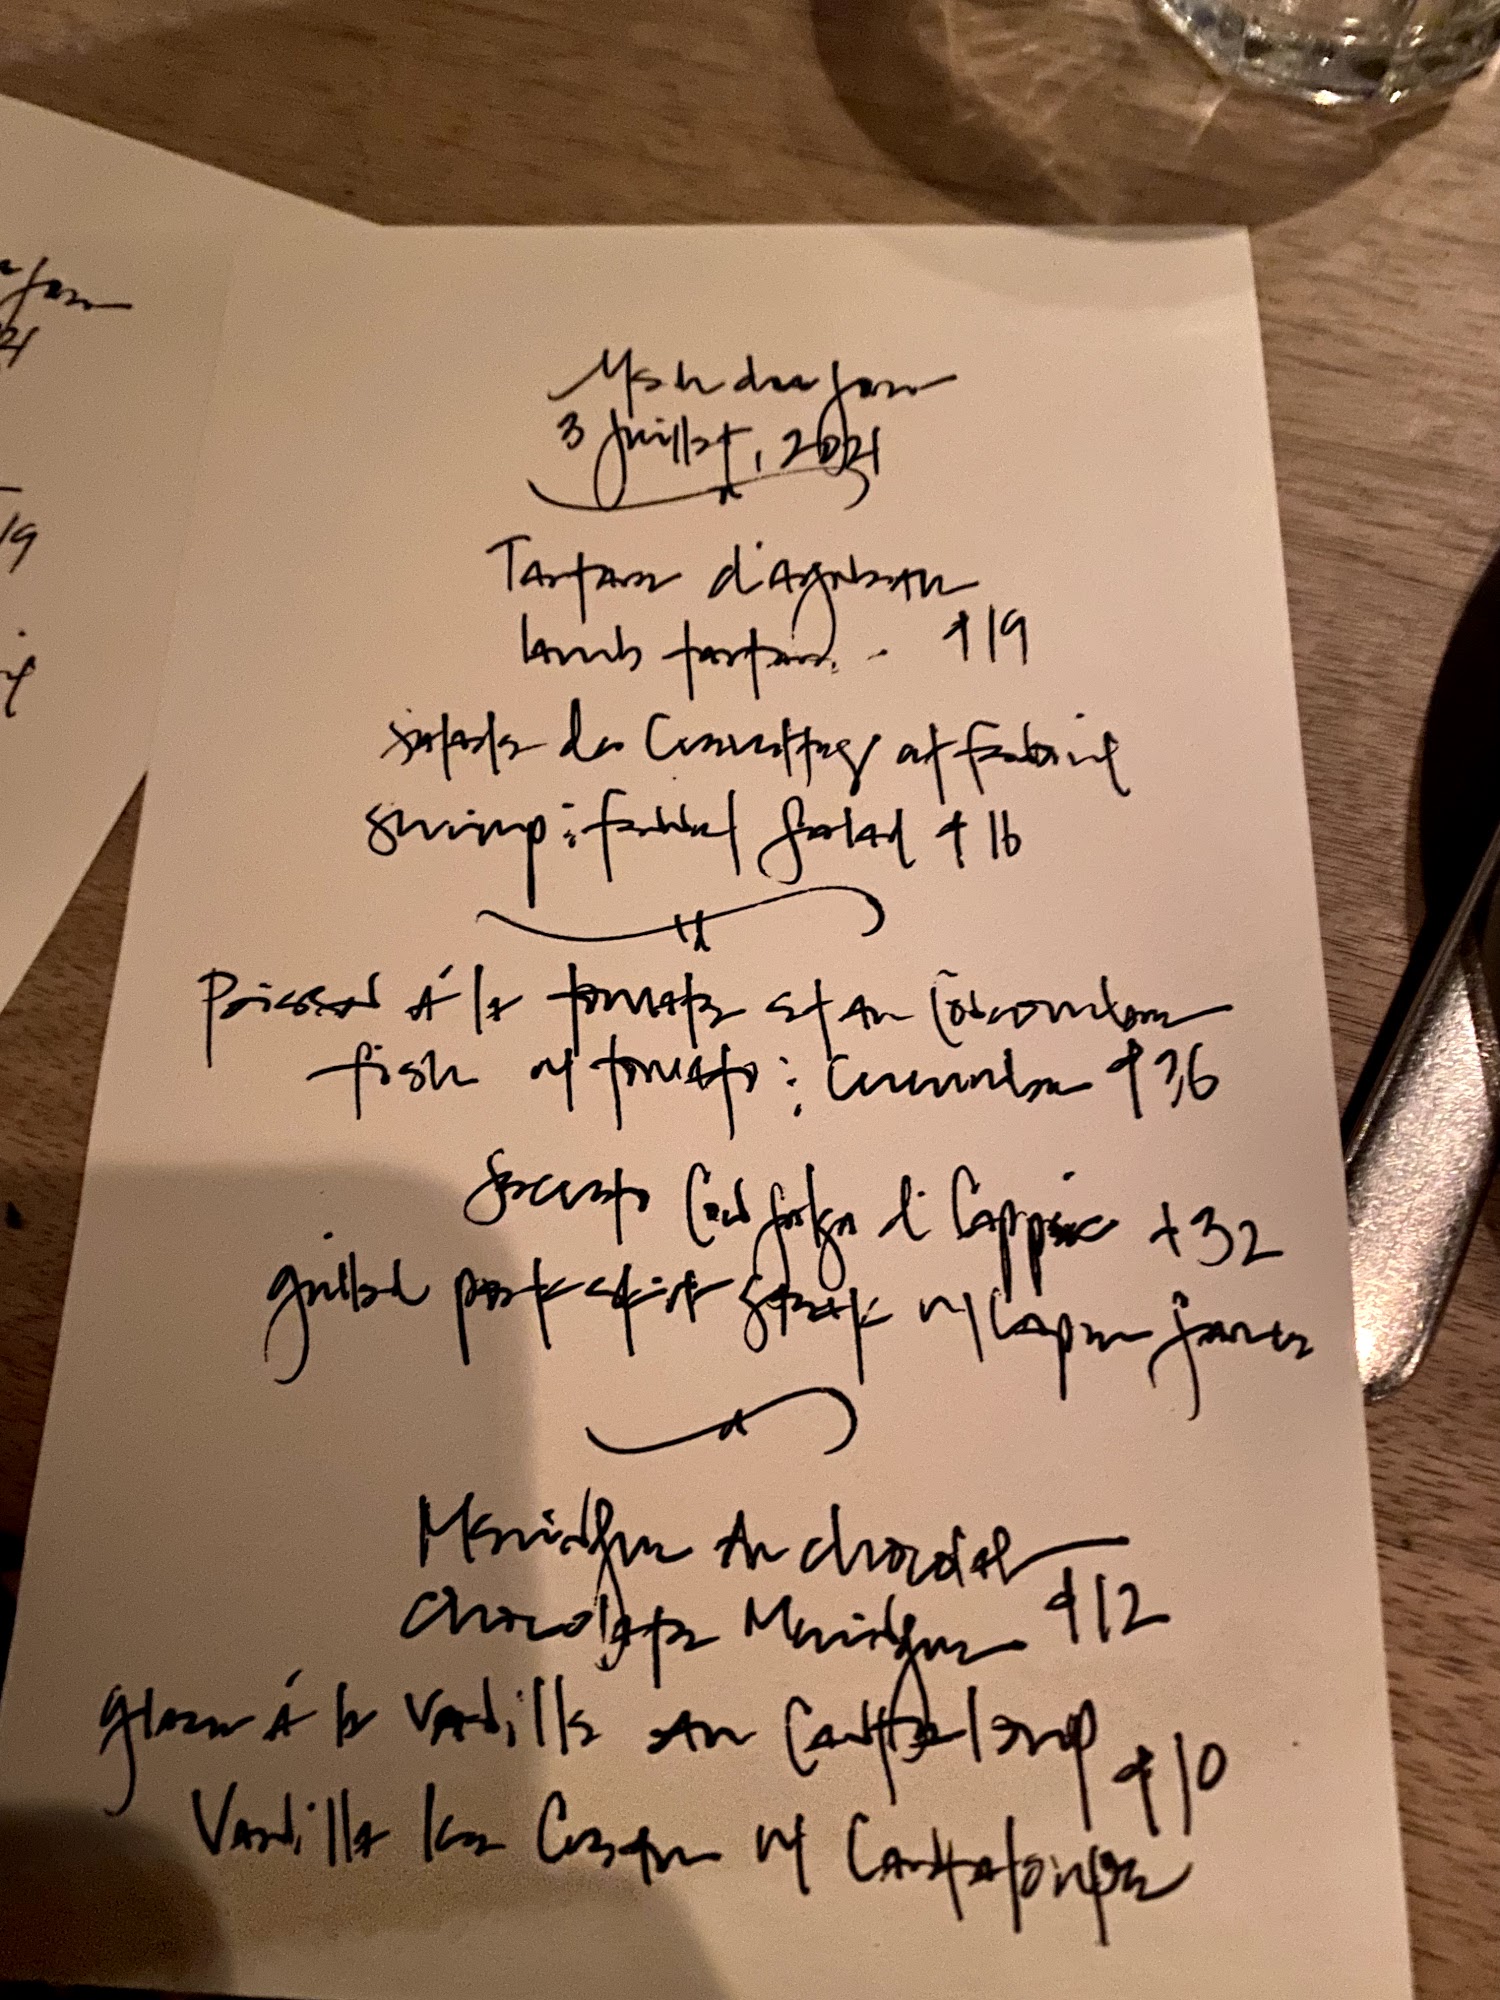 Menu du jour
3 Juillet, 2021
Tartare d'agneau
lamb tartare.. $19
salade de Crevettes et fenouil
shrimp & fennel salad $16
Poisson á la tomate et au Concombre
fish w/ tomato & Cucumber $36
di Cappero $32
grilled pork skirt steak w/ Caper sauce
Meringue au chocolat
Chocolate Meringue $12
glace á la Vanille au Canteloup
$10
Vanilla Ice Cream w/ Cantaloupe
19